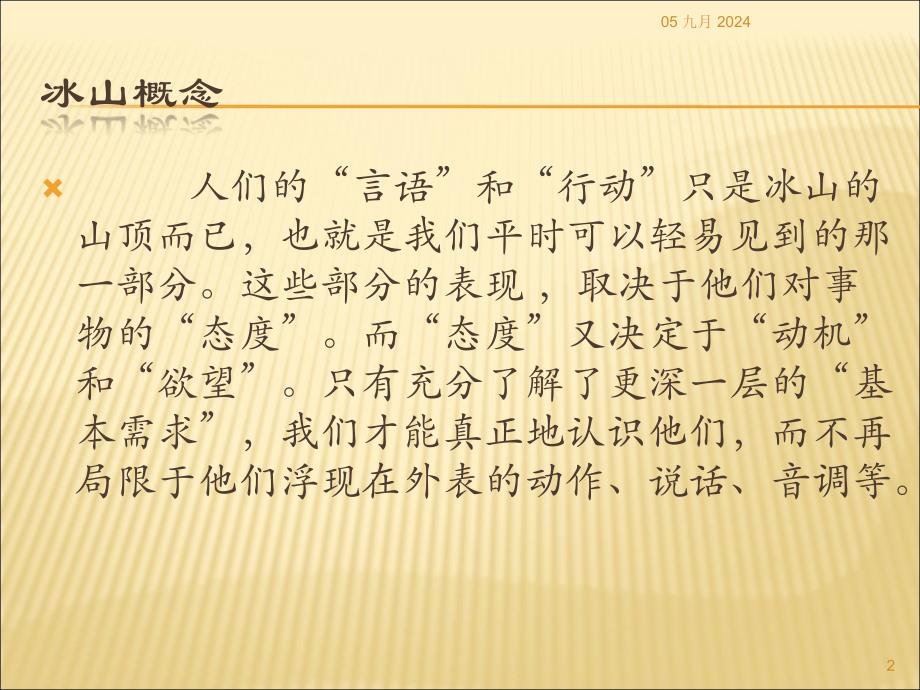 05 九月 2024
冰山概念
人们的“言语”和“行动”只是冰山的
山顶而已，也就是我们平时可以轻易见到的那
一部分。这些部分的表现，取决于他们对事
物的“态度”。而“态度”又决定于“动机”
和“欲望”。只有充分了解了更深一层的“基
本需求”，我们才能真正地认识他们，而不再
局限于他们浮现在外表的动作、说话、音调等。
2